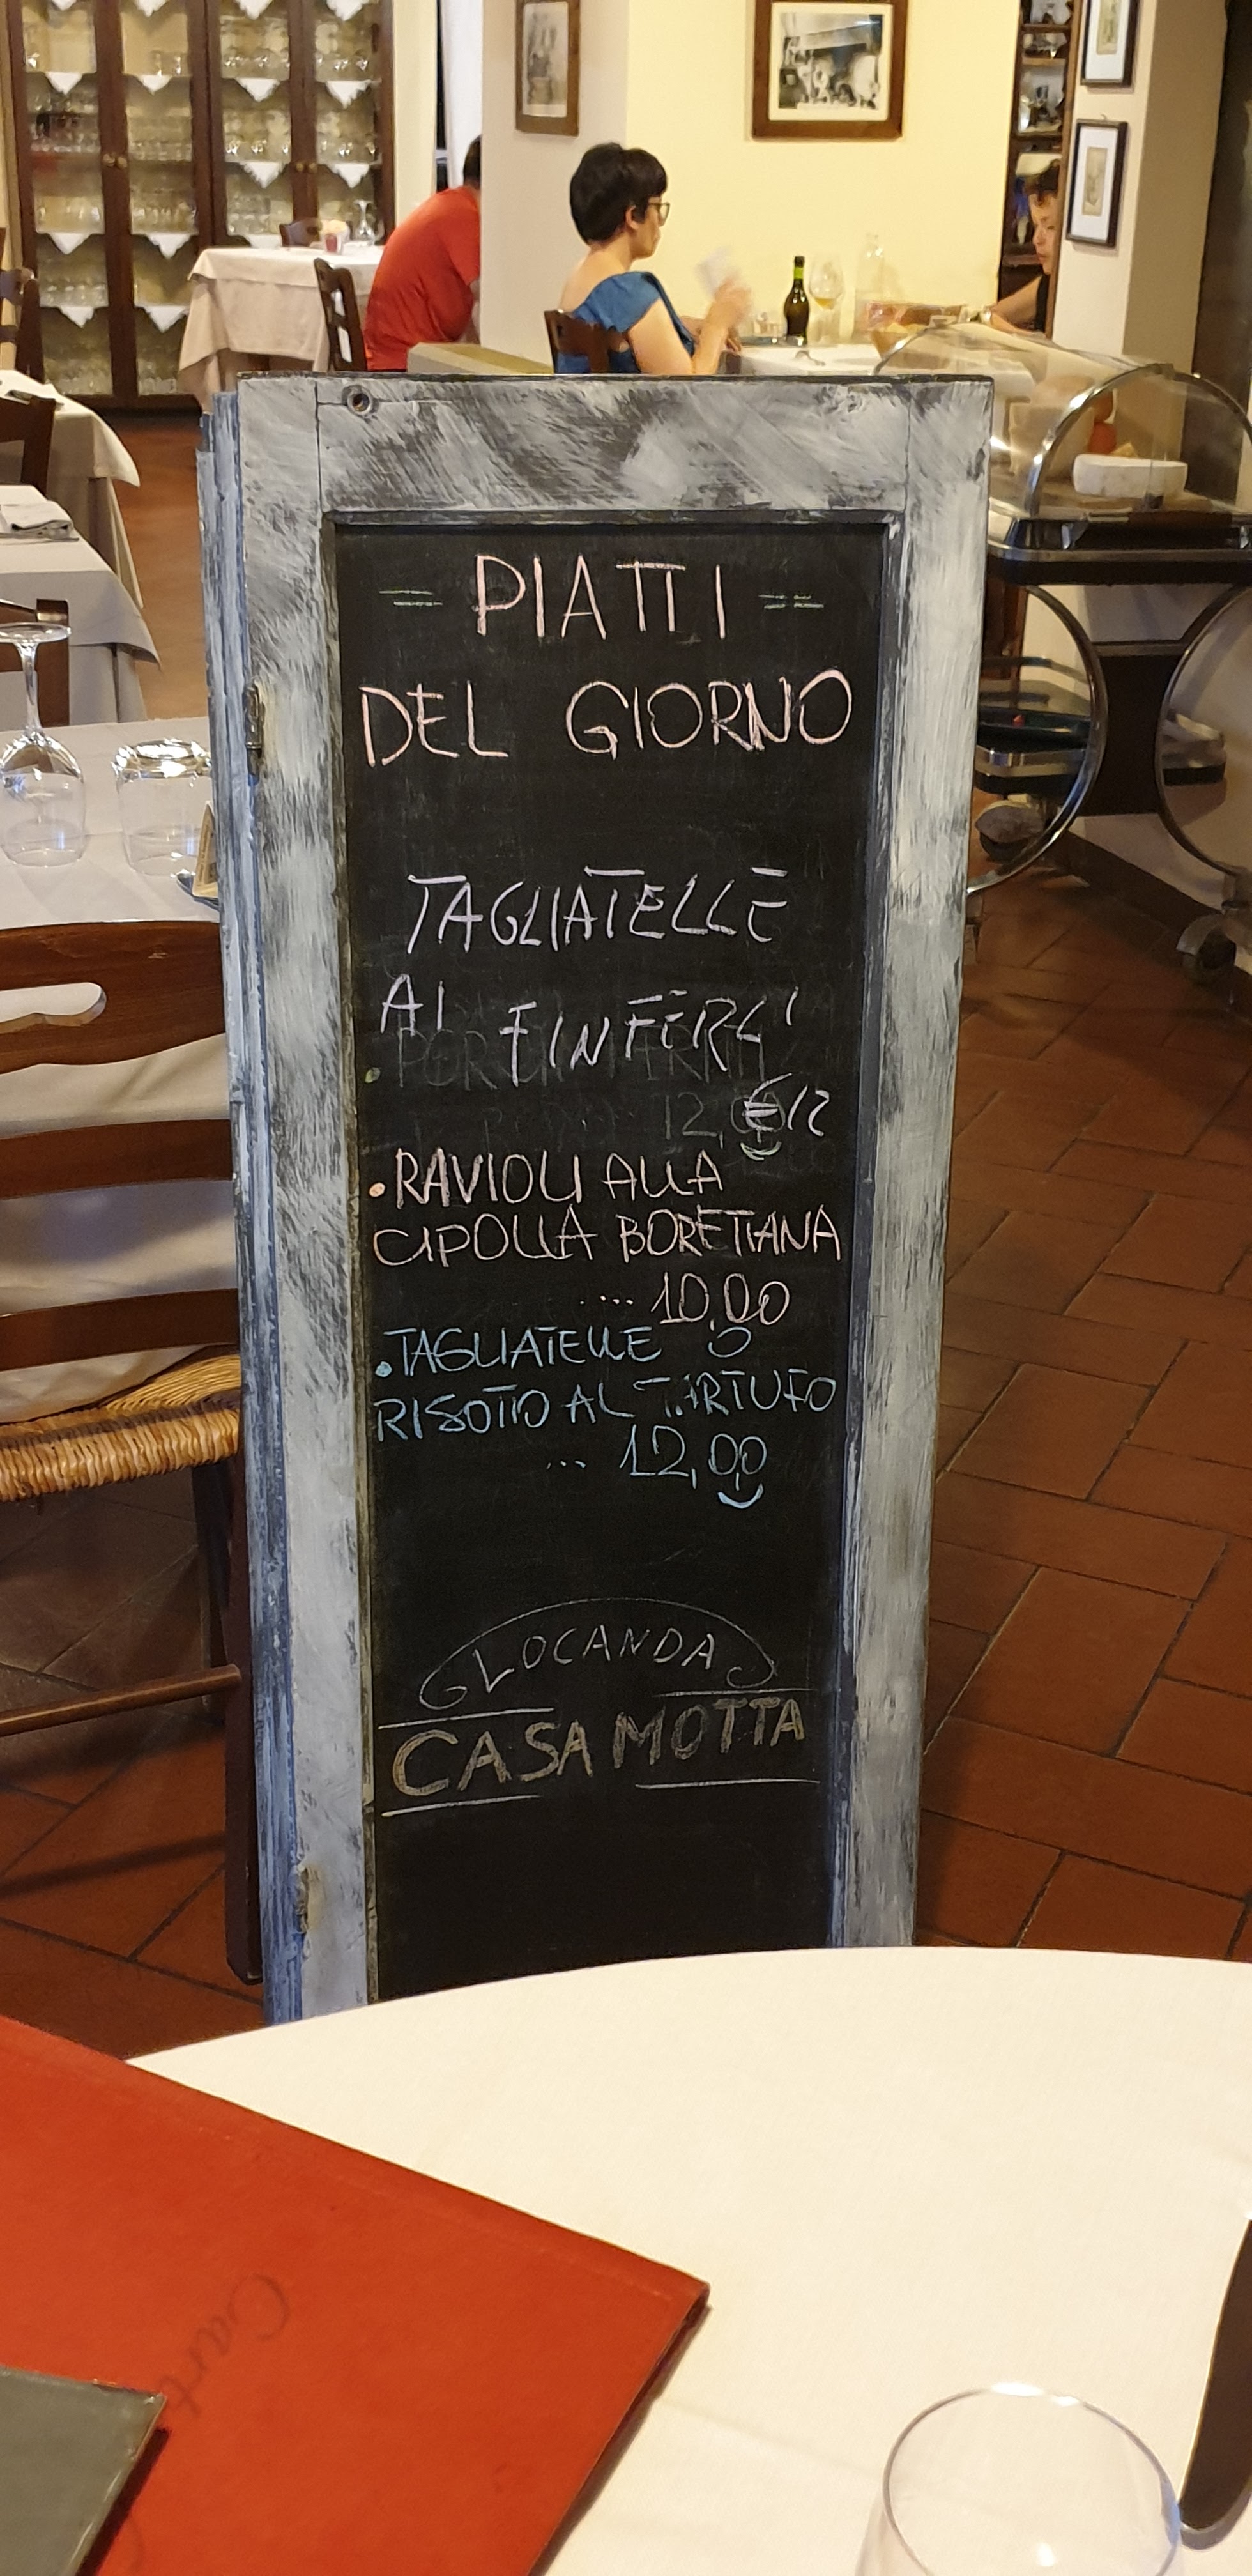 PIATTI
DEL GIORNO
TAGLIATELLE
AI FINFERLI
€12
• RAVIOLI ALLA
CIPOLLA BORETTANA
.... 10,00
• TAGLIATELLE O
RISOTTO AL TARTUFO
... 12,00
LOCANDA
CASA MOTTA
Cart